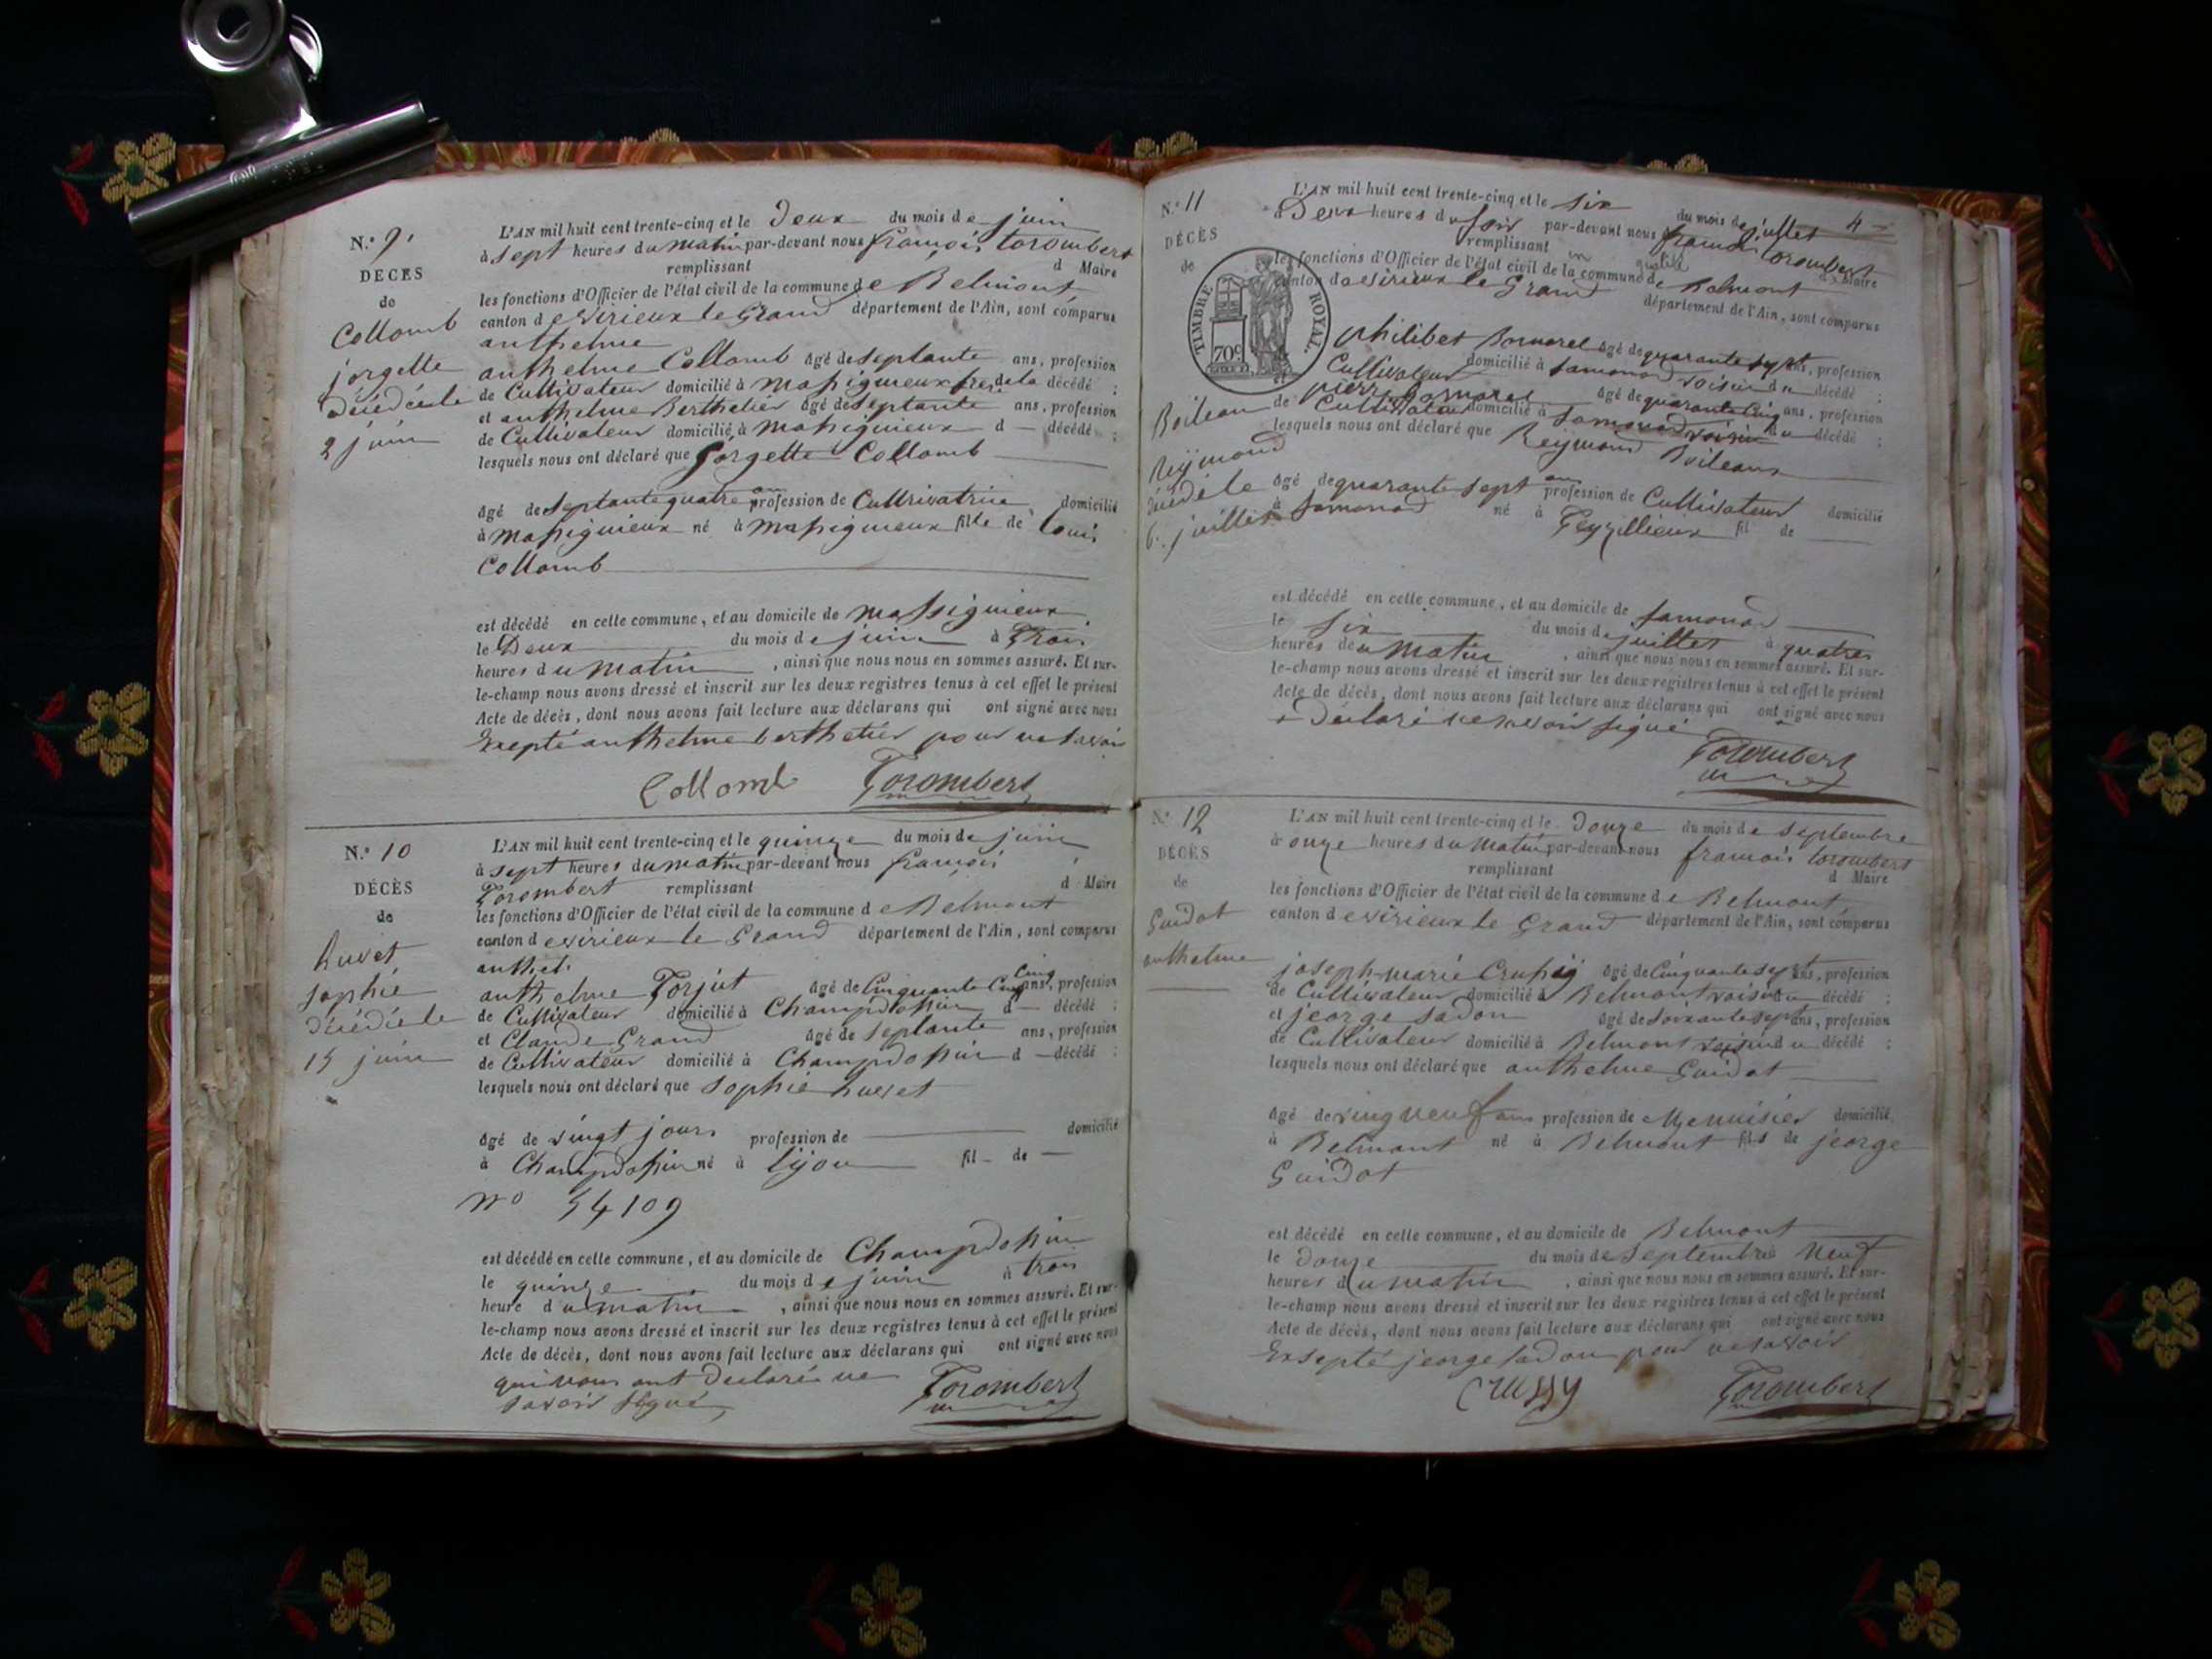 N.° 9.
DÉCÈS
de
Collomb
jorgette
décédée le
2 juin
L'AN mil huit cent trente-cinq et le Deux du mois de juin
à sept heures du matin par-devant nous françois torombert
remplissant d Maire
les fonctions d'Officier de l'état civil de la commune de Belmont
canton de virieux le Grand département de l'Ain, sont comparus
anthelme
anthelme Collomb âgé de septante ans, profession
de Cultivateur domicilié à massignieux frere de la décédé ;
et anthelme Berthelier âgé de septante ans, profession
de Cultivateur domicilié à massignieux d — décédé ;
lesquels nous ont déclaré que Jorgette Collomb
âgé de septante quatre ans profession de Cultivatrice domicilié
à massignieux né à massignieux fille de Loui
Collomb
est décédé en cette commune, et au domicile de massignieux
le Deux du mois de juin à Trois
heures du matin , ainsi que nous nous en sommes assuré. Et sur-
le-champ nous avons dressé et inscrit sur les deux registres tenus à cet effet le présent
Acte de décès, dont nous avons fait lecture aux déclarans qui ont signé avec nous
Exepté anthelme berthelier pour ne savoir
Collomb Torombert
N.° 10
DÉCÈS
de
huvet
sophie
décédée le
15 juin
L'AN mil huit cent trente-cinq et le quinze du mois de juin
à sept heures du matin par-devant nous françois
Torombert remplissant d Maire
les fonctions d'Officier de l'état civil de la commune de Belmont
canton de virieux le Grand département de l'Ain, sont comparus
anthel
anthelme Forjut âgé de Cinquante Cinq ans, profession
de Cultivateur domicilié à Champdossin d — décédé ;
et Claude Grand âgé de septante ans, profession
de Cultivateur domicilié à Champdossin d — décédé ;
lesquels nous ont déclaré que Sophie huvet
âgé de vingt jours profession de domicilié
à Champdossin né à lijou fil de —
n° 54109
est décédé en cette commune, et au domicile de Champdossin
le quinze du mois de juin à trois
heure du matin , ainsi que nous nous en sommes assuré. Et sur-
le-champ nous avons dressé et inscrit sur les deux registres tenus à cet effet le présent
Acte de décès, dont nous avons fait lecture aux déclarans qui ont signé avec nous
qui nous ont declaré ne
savoir signé Torombert
4
N.° 11
DÉCÈS
de
Boileau
Reymond
décédé le
6 juillet
TIMBRE ROYAL.
70c
L'AN mil huit cent trente-cinq et le six du mois de juillet
à Deux heures du soir par-devant nous françoi torombert
remplissant en qualité de Maire
les fonctions d'Officier de l'état civil de la commune de Belmont
canton de virieux le Grand département de l'Ain, sont comparus
philibet Bornarel âgé de quarante sept ans, profession
Cultivateur domicilié à samonod voisin du décédé ;
et pierre Bornarel âgé de quarante Cinq ans, profession
de Cultivateur domicilié à samonod voisin du décédé ;
lesquels nous ont déclaré que Reymond Boileau
âgé de quarante sept ans profession de Cultivateur domicilié
à samonod né à Geyzillieux fil de
est décédé en cette commune, et au domicile de samonod
le six du mois de juillet à quatre
heures de matin , ainsi que nous nous en sommes assuré. Et sur-
le-champ nous avons dressé et inscrit sur les deux registres tenus à cet effet le présent
Acte de décès, dont nous avons fait lecture aux déclarans qui ont signé avec nous
Déclaré ne savoir signé
Torombert
N.° 12
DÉCÈS
de
Guidot
anthelme
L'AN mil huit cent trente-cinq et le Douze du mois de septembre
à onze heures du matin par-devant nous françois torombert
remplissant d Maire
les fonctions d'Officier de l'état civil de la commune de Belmont
canton de virieux le Grand département de l'Ain, sont comparus
joseph-marie Crussy âgé de Cinquante sept ans, profession
de Cultivateur domicilié à Belmont voisin du décédé ;
et jeorge sadon âgé de soixante sept ans, profession
de Cultivateur domicilié à Belmont voisin du décédé ;
lesquels nous ont déclaré que anthelme Guidot
âgé de vingneuf ans profession de Menuisier domicilié
à Belmont né à Belmont fils de jeorge
Guidot
est décédé en cette commune, et au domicile de Belmont
le Douze du mois de septembre Neuf
heures du matin , ainsi que nous nous en sommes assuré. Et sur-
le-champ nous avons dressé et inscrit sur les deux registres tenus à cet effet le présent
Acte de décès, dont nous avons fait lecture aux déclarans qui ont signé avec nous
Exsepté jeorge sadon pour ne savoir
Crussy Torombert